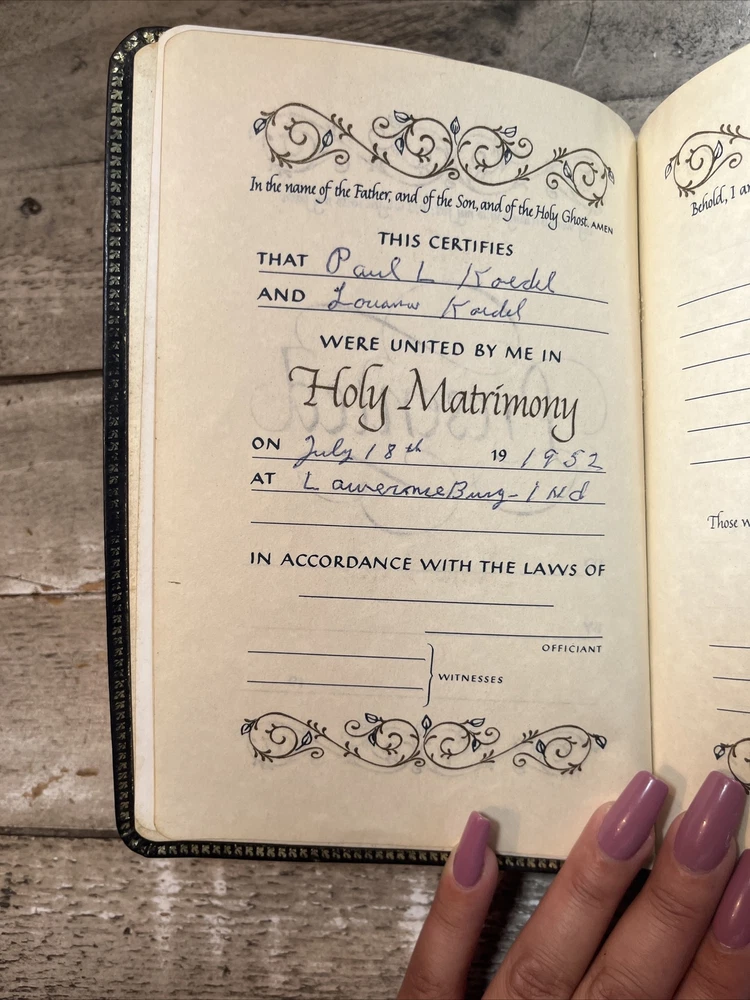 In the name of the Father, and of the Son, and of the Holy Ghost. AMEN
THIS CERTIFIES
THAT Paul L Koedel
AND Louann Koedel
WERE UNITED BY ME IN
Holy Matrimony
ON July 18th 19 1952
AT LawerenceBurg-INd
IN ACCORDANCE WITH THE LAWS OF
OFFICIANT
WITNESSES
Behold, I
Those